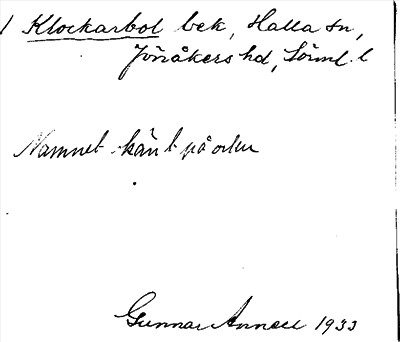 1 Klockarbol bek, Halla sn,
Jönåkers hd, Sörml. l
Namnet känt på orten
Gunnar Annell 1933